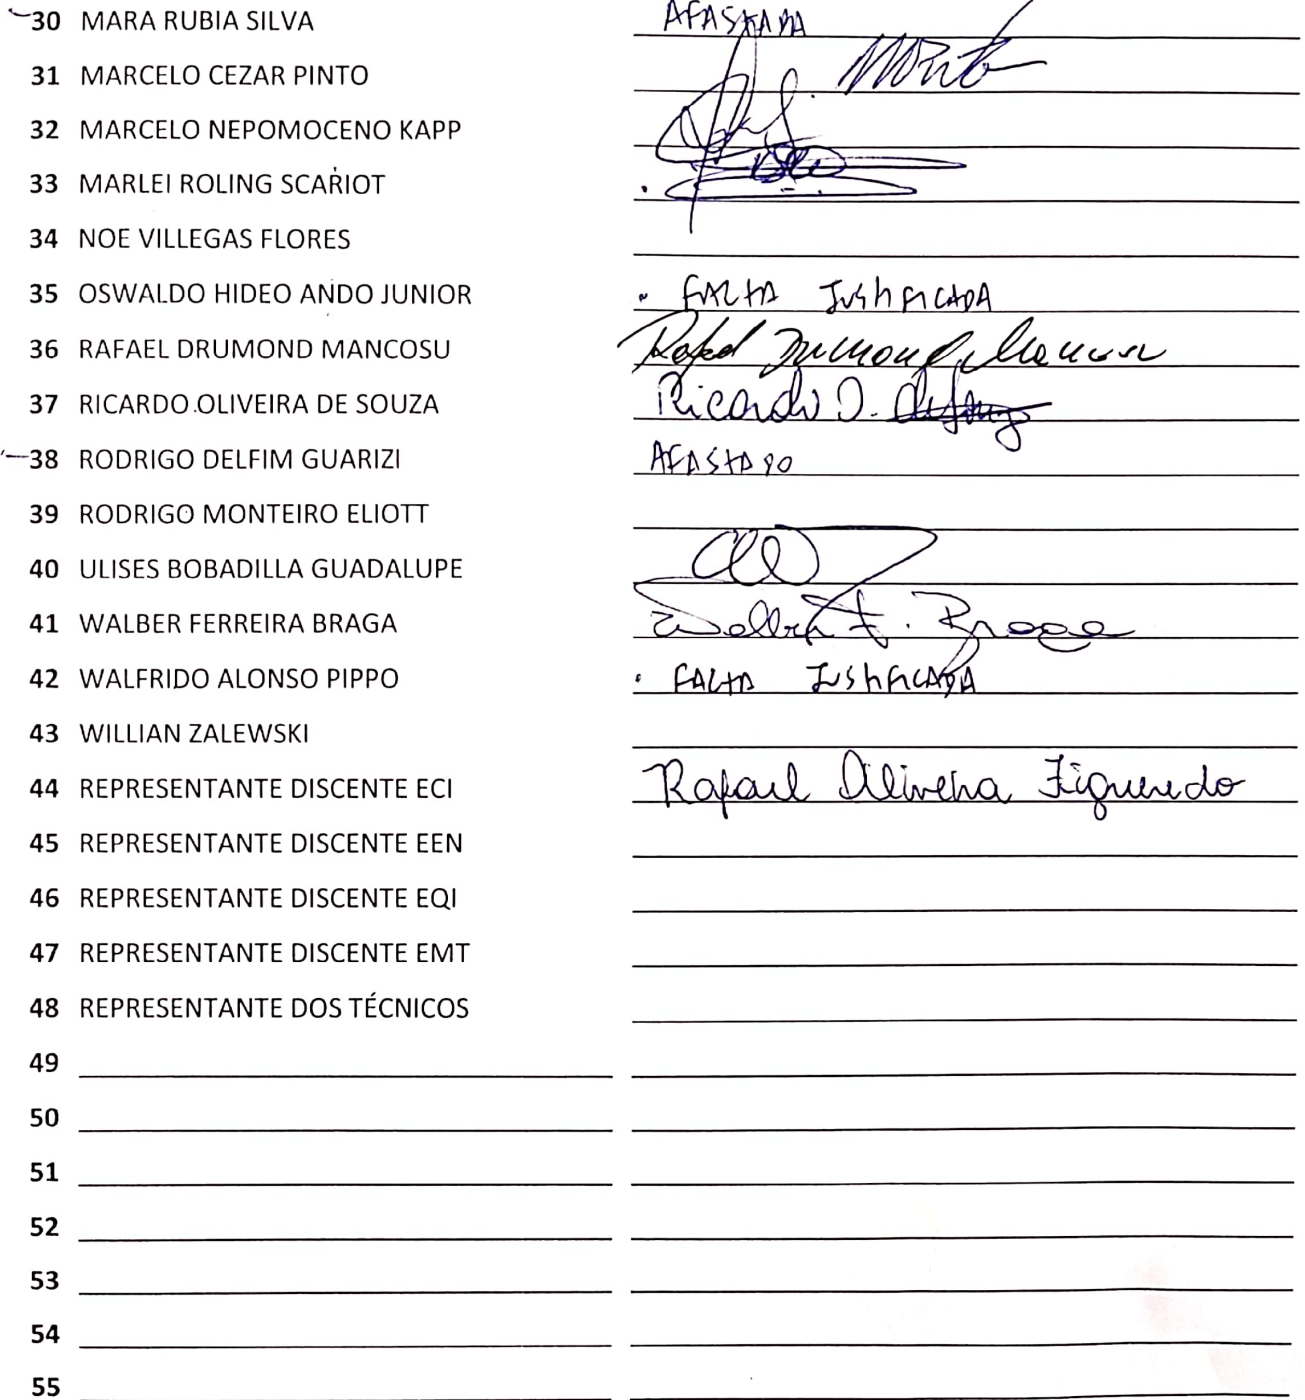 30 MARA RUBIA SILVA AFASTADA
31 MARCELO CEZAR PINTO
32 MARCELO NEPOMOCENO KAPP
33 MARLEI ROLING SCARIOT
34 NOE VILLEGAS FLORES
35 OSWALDO HIDEO ANDO JUNIOR FALTA JUSTIFICADA
36 RAFAEL DRUMOND MANCOSU Rafael Drumond Mancosu
37 RICARDO OLIVEIRA DE SOUZA Ricardo O.
38 RODRIGO DELFIM GUARIZI AFASTADO
39 RODRIGO MONTEIRO ELIOTT
40 ULISES BOBADILLA GUADALUPE
41 WALBER FERREIRA BRAGA Walber F. Braga
42 WALFRIDO ALONSO PIPPO FALTA JUSTIFICADA
43 WILLIAN ZALEWSKI
44 REPRESENTANTE DISCENTE ECI Rafael Oliveira Figueredo
45 REPRESENTANTE DISCENTE EEN
46 REPRESENTANTE DISCENTE EQI
47 REPRESENTANTE DISCENTE EMT
48 REPRESENTANTE DOS TÉCNICOS
49
50
51
52
53
54
55